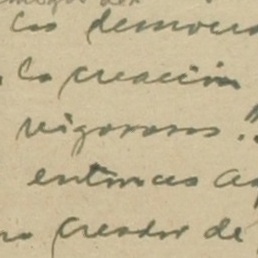 los democra
la creación
vigorosos."
entonces a
creador de